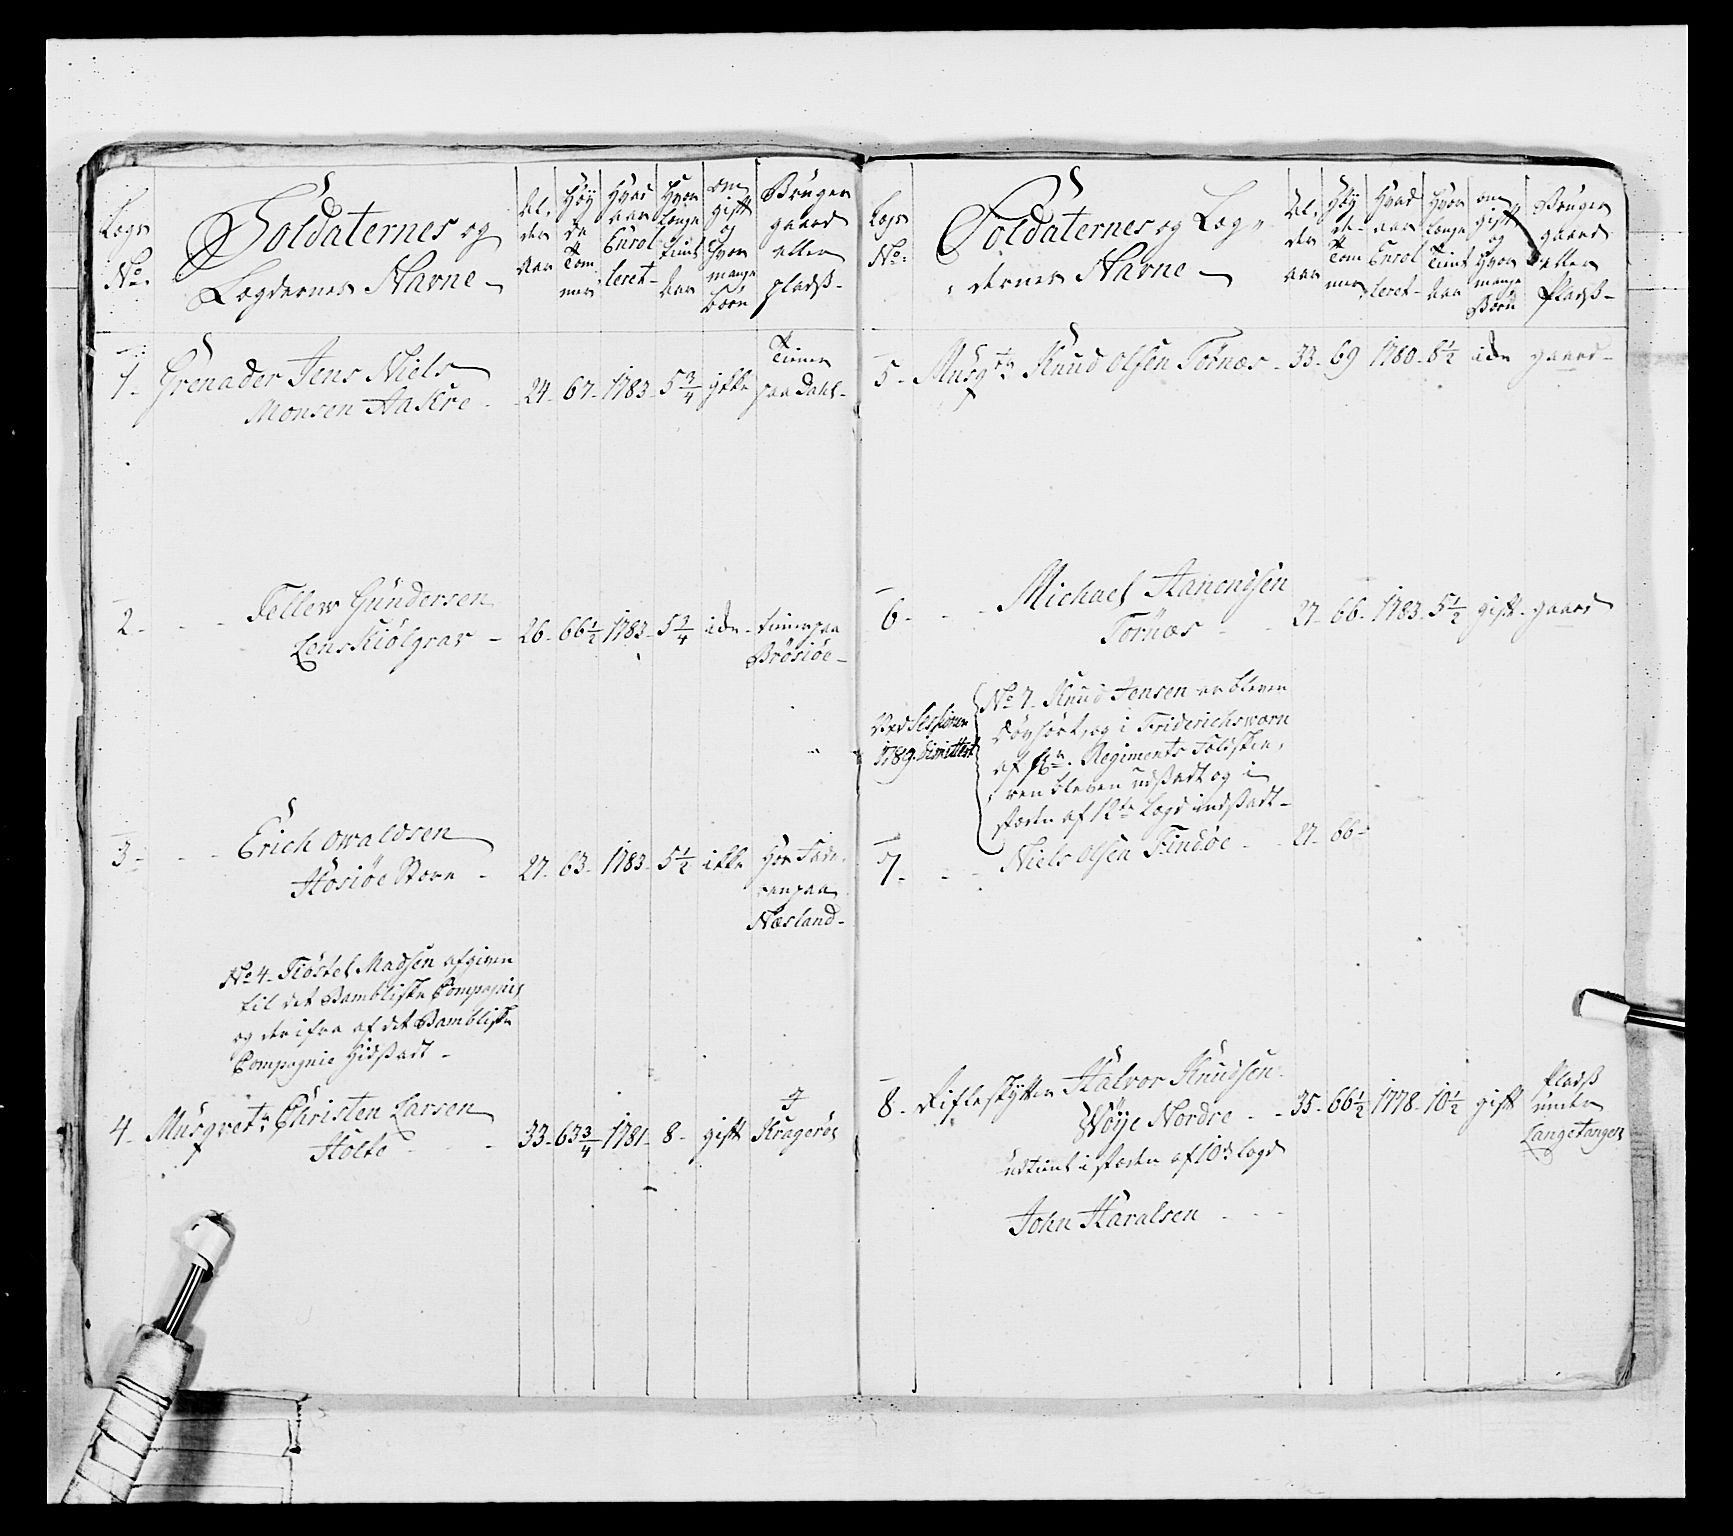 Lægs
No.
Soldaternes og
Lægdernes Navne
Al,
der
Aar
Høy
de
Tom
mer
Hvad
aar
Enrol
leret
Hvor
Længe
Tient
Aar
om
gift
og
hvor
mange
børn
Bruger
gaard
eller
pladß
1. Grenader Jens Niels
Monsen Aakre
24. 67. 1783. 5 3/4 ikke
Tiener
paa Dahl
2. Tellew Gundersen
Lenskiølgrav
26. 66 1/2 1783. 5 3/4 ide
tiener paa
Brøsiøe
3. Erich Owaldsen
Hosiøe Store
27. 63. 1783. 5 1/2 ikke
Hos Fade
ren paa
Næsland
No 4. Tiøstel Madsen afgiven
til det Bambliske Compagnie
og derifra af det Bambliske
Compagnie Hidsadt
4. Musqvetr. Christen Larsen
Holte
33. 63 3/4 1781. 8. gift
i
Kragerøe
Lægs
No:
Soldaternes og Læg
dernes Navne
Al,
der
aar
Høy
de
Tom
mer
Hvad
aar
Enrol
leret
Hvor
Længe
Tient
Aar
om
gift
og
Hvor
mange
Børn
Bruger
gaard
eller
Pladß
5. Musqtr Knud Olsen Tornæs 33. 69. 1780. 8 1/2 ide gaard
6. Michael Aanendsen
Tornæs
27. 66. 1783. 5 1/2 gift gaard
Ved Sessionen
1789. dimittert
No 7. Knud Jensen er bleven
og i Friderichsværn
af Regiments Feldskier,
ren bleven udsadt og i
steden af 12te Lægd indsadt
7. Niels Olsen Findøe 27. 66
8. Rifleskytter Halvor Knudsen
Wøije Nordre
35. 66 1/2 1778. 10 1/2 gift
Pladß
under
Langetangen
udtient i steden af 10de lægd
John Haralsen